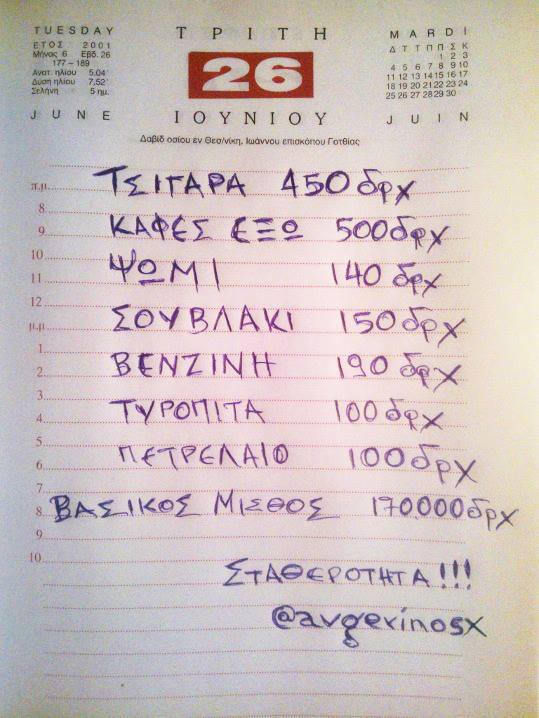 TUESDAY
ΕΤΟΣ 2001
Μήνας 6 Εβδ. 26
177 – 189
Ανατ. ηλίου 5.04΄
Δύση ηλίου 7.52΄
Σελήνη 5 ημ.
JUNE
ΤΡΙΤΗ
26
ΙΟΥΝΙΟΥ
MARDI
Δ Τ Τ Π Π Σ Κ
1 2 3
4 5 6 7 8 9 10
11 12 13 14 15 16 17
18 19 20 21 22 23 24
25 26 27 28 29 30
JUIN
Δαβίδ οσίου εν Θεσ/νίκη, Ιωάννου επισκόπου Γοτθίας
π.μ. ΤΣΙΓΑΡΑ 450 δρχ
8
9 ΚΑΦΕΣ ΕΞΩ 500 δρχ
10
11 ΨΩΜΙ 140 δρχ
12
μ.μ. ΣΟΥΒΛΑΚΙ 150 δρχ
1
2 ΒΕΝΖΙΝΗ 190 δρχ
3
4 ΤΥΡΟΠΙΤΑ 100 δρχ
5
6 ΠΕΤΡΕΛΑΙΟ 100 δρχ
7
8 ΒΑΣΙΚΟΣ ΜΙΣΘΟΣ 170.000 δρχ
9
10
ΣΤΑΘΕΡΟΤΗΤΑ!!!
@avgerinosx